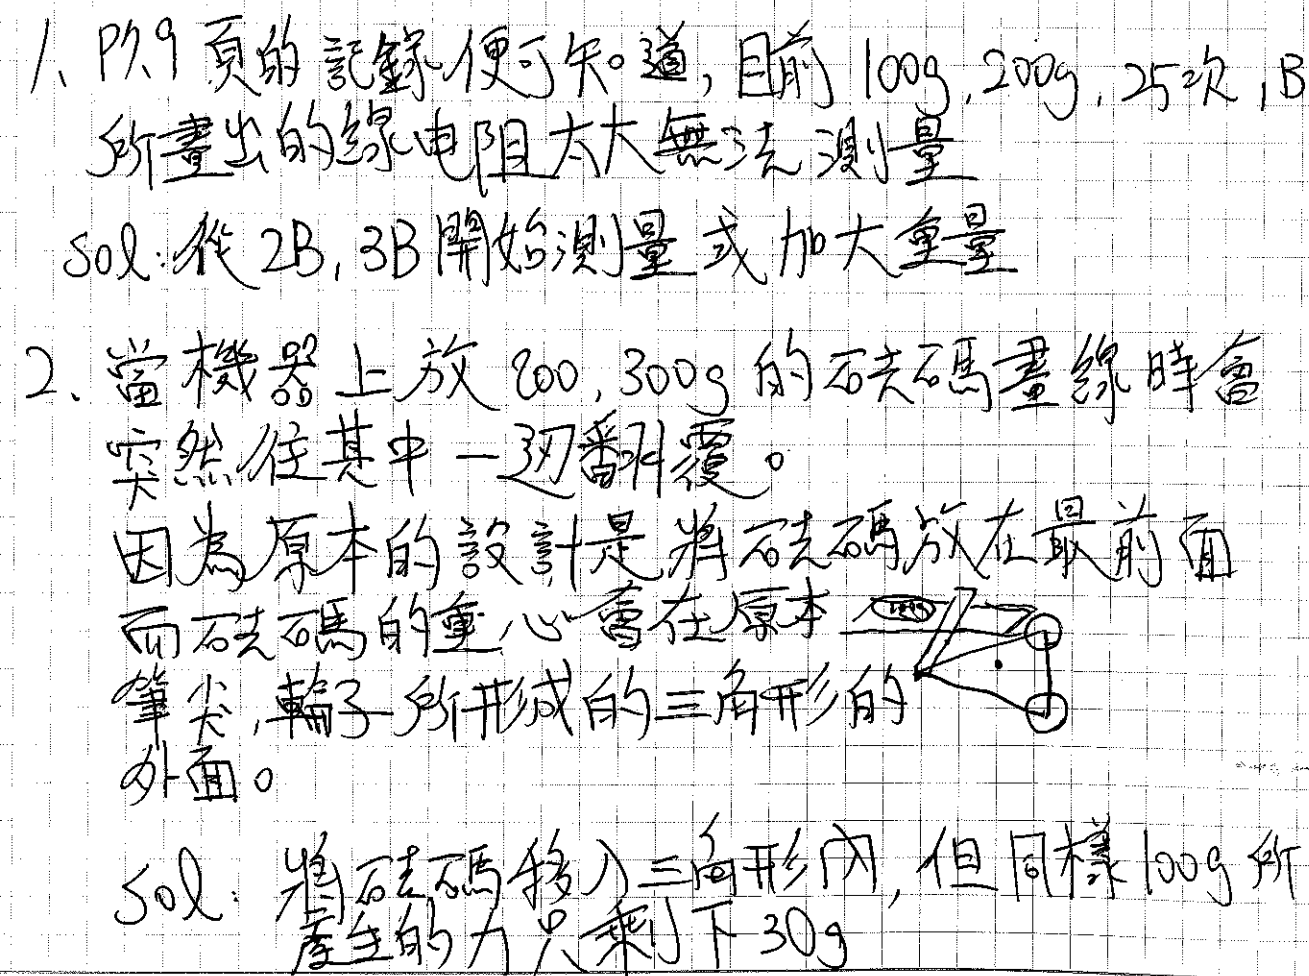 1、P7,9頁的記錄便可知道,目前100g,200g,25次,B
所畫出的線電阻太大無法測量
sol:從2B,3B開始測量或加大重量
2、當機器上放200,300g的砝碼畫線時會
突然往其中一边翻覆。
因為原本的設計是將砝碼放在最前面
而砝碼的重心會在原本
筆尖,輪子所形成的三角形的
外面。
sol:將砝碼移入三角形內,但同樣100g所
產生的力只剩下30g